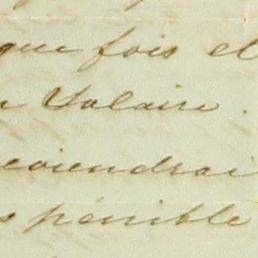 que fois et
Salaire.
reviendrai
s pénible